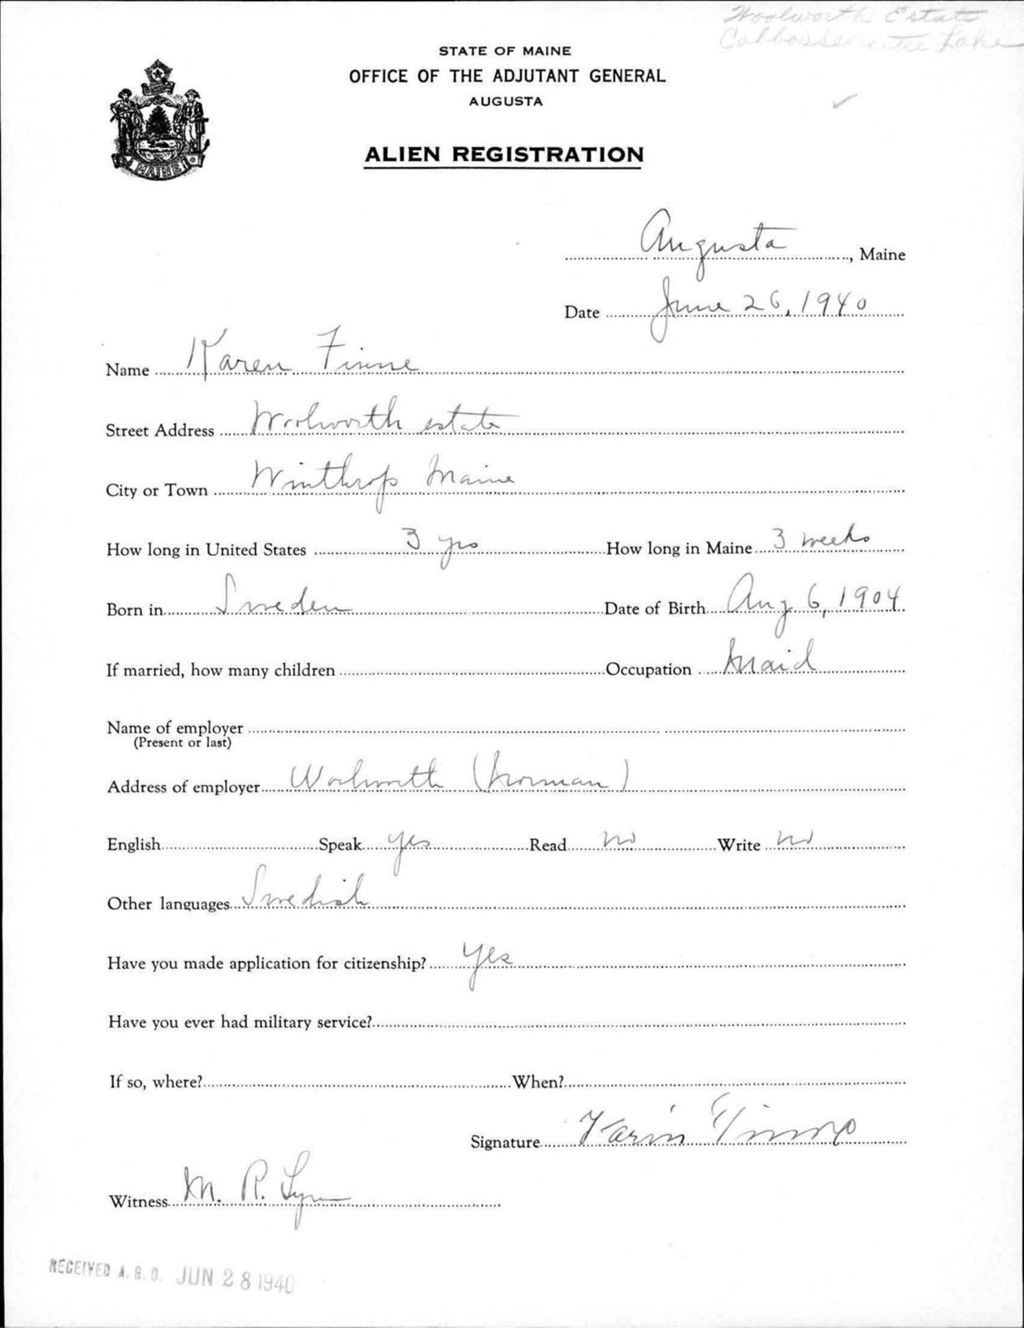 Woolworth Estate
Cobbosseecontee Lake
STATE OF MAINE
OFFICE OF THE ADJUTANT GENERAL
AUGUSTA
ALIEN REGISTRATION
MAINE
Augusta, Maine
Date June 26, 1940
Name Karen Finne
Street Address Woolworth estate
City or Town Winthrop Maine
How long in United States 3 yrs How long in Maine 3 weeks
Born in Sweden Date of Birth Aug 6, 1904
If married, how many children Occupation Maid
Name of employer
(Present or last)
Address of employer Woolworth (Norman)
English Speak yes Read no Write no
Other languages Swedish
Have you made application for citizenship? yes
Have you ever had military service?
If so, where? When?
Signature Karin Finne
Witness M. R. Lynn
RECEIVED A. G. O. JUN 28 1940